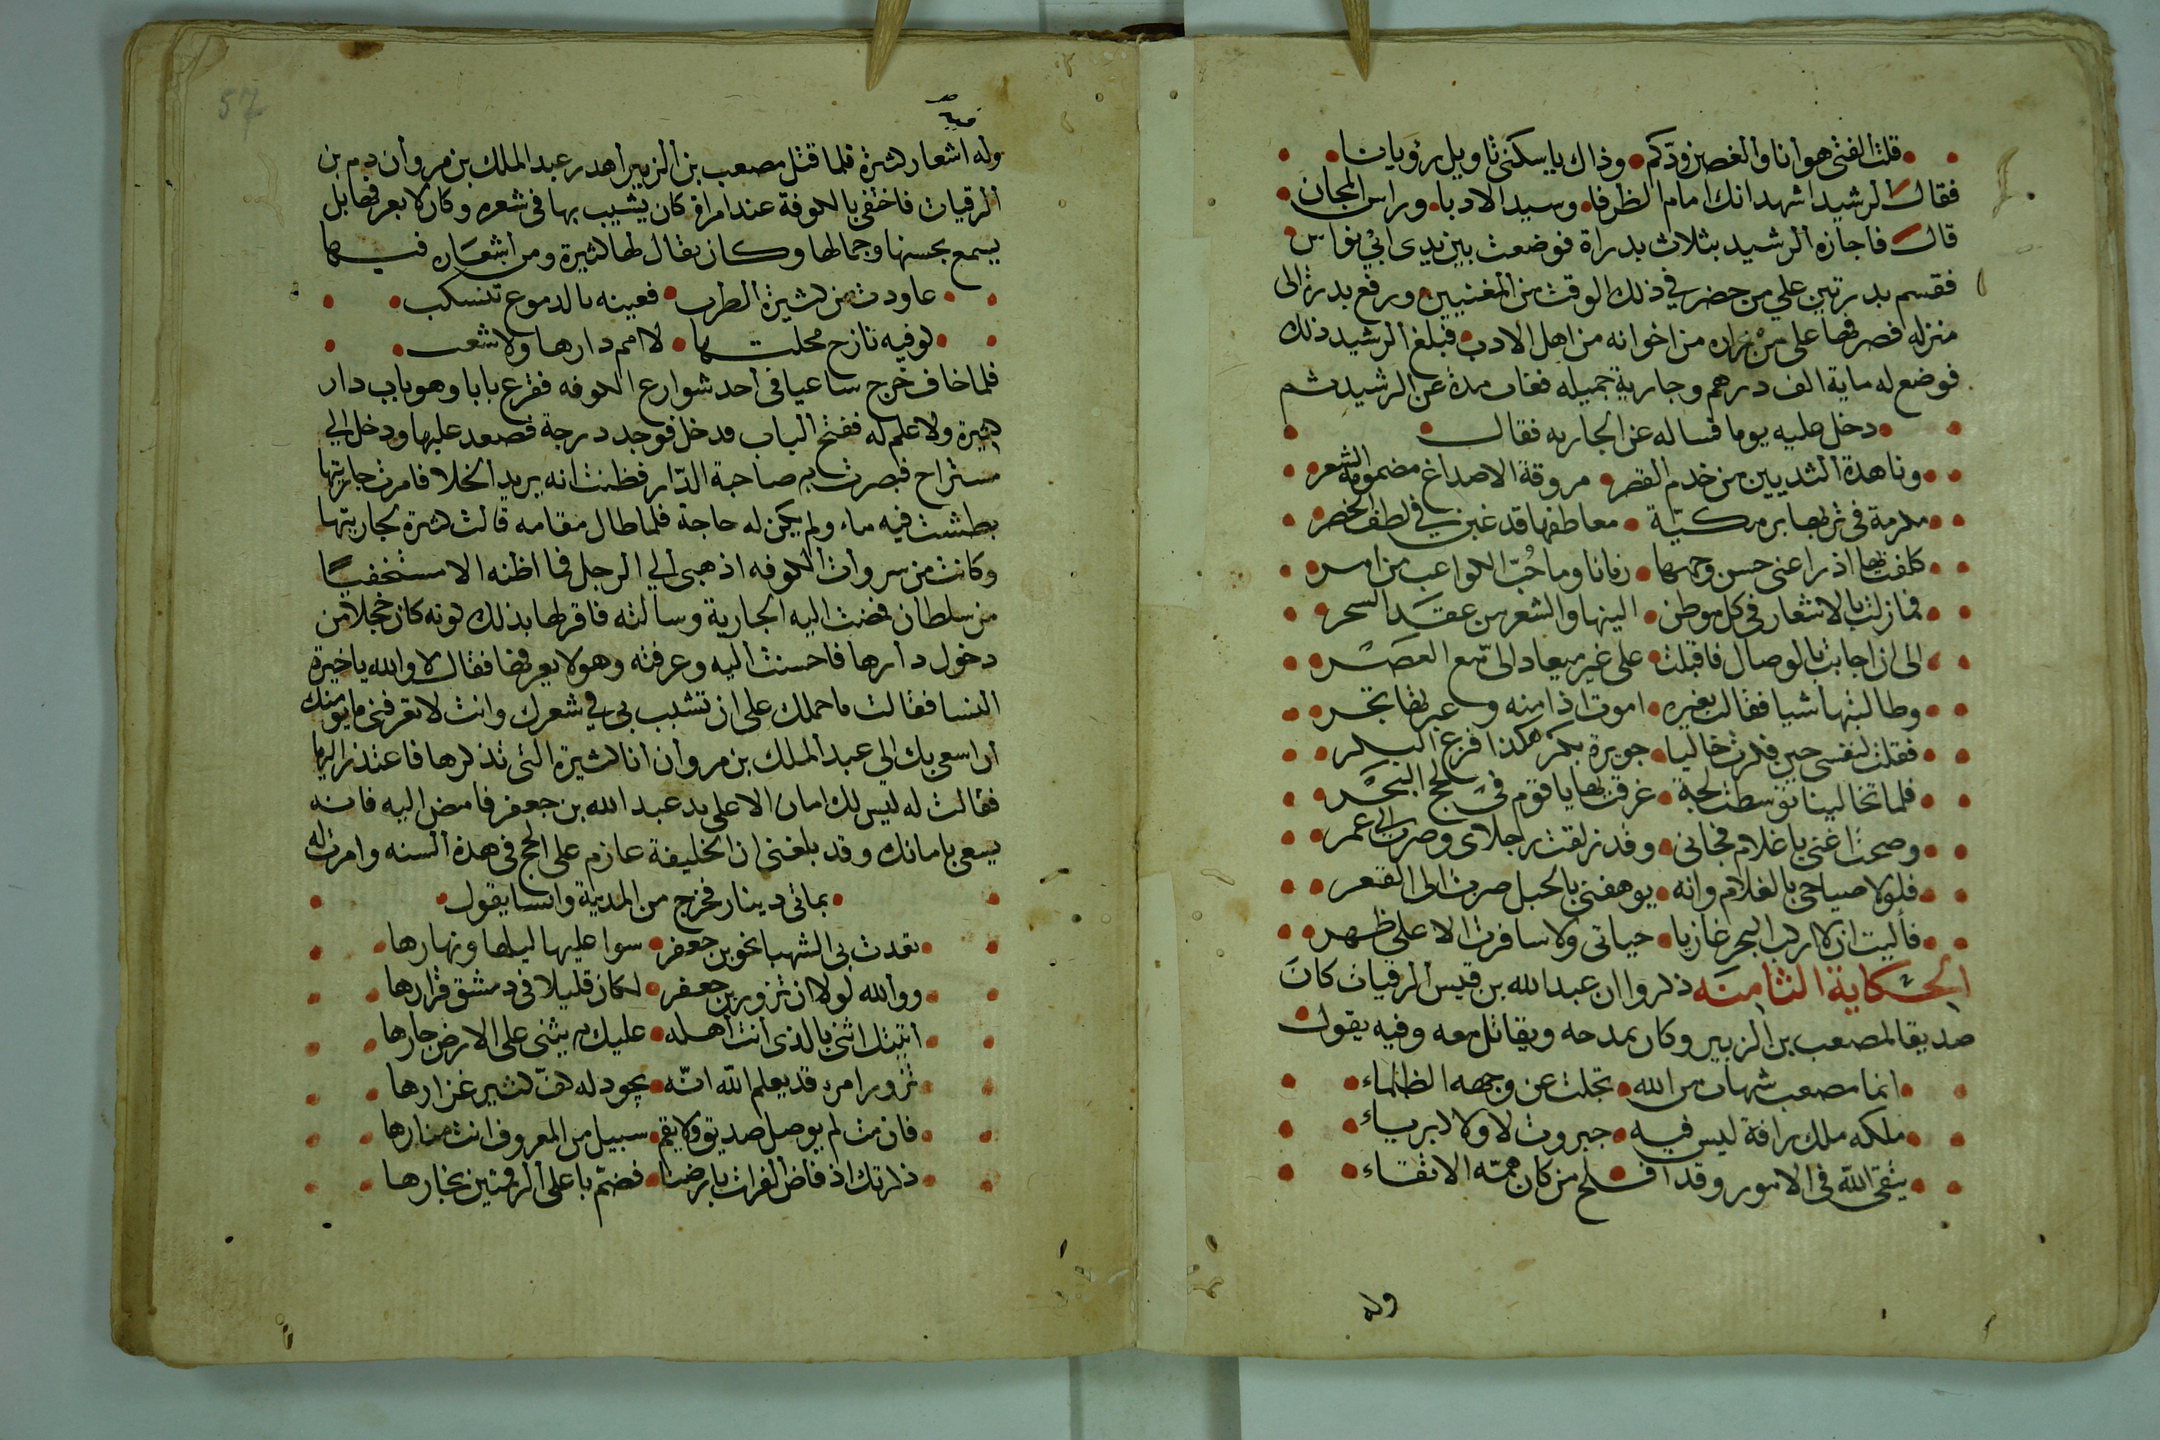 قلت الفتى هو انا والغصن ودّكم وذاك يا سكني تاويل رؤيانا
فقال الرشيد اشهد انك امام الظرفا وسيد الادبا وراس المجان
قال فاجازه الرشيد بثلاث بدراة فوضعت بين يدي ابي نواس
فقسم بدرتين علي من حضر في ذلك الوقت من المغنيين ورفع بدرة الى
منزله فصرفها على من اخوانه من اهل الادب فبلغ الرشيد ذلك
فوضع له ماية الف درهم وجارية جميله فغاب مدة عن الرشيد ثم
دخل عليه يوما فساله عن الجاريه فقال
وناهدة الثديين من خدم القصر مروقة الاصداغ مضمومة الشعر
معاطفها قد غبن في لطف الخصر
كلفت بها اذ راعني حسن وجهها زمانا وما حُبّ الكواعب من امر
فما زلت بالاشعار في كل موطن اليها والشعر من عقد السحر
الى ان اجابت بالوصال فاقبلت على غير ميعاد الى مع العصر
وطالبتها شيا فقالت بغيره اموت اذا منه
فقلت لنفسي حين فكرت خاليا جويرة بكر هكذا فزع البكر
فلما تخالينا توسطت لجة غرقت بها يا قوم في لجج البحر
وصحت اغثني يا غلام فجاني وقد زلقت رجلاي وصرت الى عمر
فلولا صياحي بالغلام وانه يوهفني بالحبل صرت الى القعر
فاليت ان لا اركب البحر غازيا حياتي ولا سافرت الا على ظهر
الحكاية الثامنه ذكروا ان عبد الله بن قيس الرقيات كان
صديقا لمصعب بن الزبير وكان يمدحه ويقاتل معه وفيه يقول
انما مصعب شهاب من الله تجلت عن وجهه الظلماء
ملكه ملك رافة ليس فيه جبروت لا ولا كبرياء
يتقي الله في الامور وقد افلح من كان همّه الاتقاء
وله
57
وله اشعار كثيرة فلما قتل مصعب بن الزبير اهدر عبد الملك بن مروان دم بن
الرقيات فاختفى بالكوفة عند امراة كان يشبب بها في شعره وكان لا يعرفها بل
يسمع بحسنها وجمالها وكان يقال لها كثيرة ومن اشعاره فيها
عاودت من كثيرة الطرب فعينه بالدموع تنسكب
كوفيه نازح محلتها لا امم دارها ولا شعب
فلما خاف خرج ساعيا في احد شوارع الكوفه فقرع بابا وهو باب دار
كثيرة ولا علم له ففتح الباب فدخل فوجد درجة فصعد عليها ودخل الي
مستراح فبصرت به صاحبة الدّار فظنت انه يريد الخلا فامرت جاريتها
بطشت فيه ماء ولم يكن له حاجة فلما طال مقامه قالت كثيرة لجاريتها
وكانت من سروات الكوفه اذهبي الي الرجل فما اظنه الا مستخفيًا
من سلطان فمضت اليه الجارية وسالته فاقر لها بذلك لونه كان خجلا من
دخول دارها فاحسنت اليه وعرفته وهو لا يعرفها فقال لا والله يا خيرة
النسا فقالت ما حملك على ان تشبب بي في شعرك وانت لا تعرفني ما يومنك
ان اسعى بك الي عبد الملك بن مروان انا كثيرة التي تذكرها فاعتذر اليها
فقالت له ليس لك امان الا على يد عبد الله بن جعفر فامض اليه فانه
يسعى بامانك وقد بلغني ان الخليفة عازم على الحج في هذه السنه وامرت له
بماتي دينار فخرج من المدينة وانسا يقول
تقدت بي الشهبا نحو بن جعفر سوا عليها ليلها ونهارها
ووالله لولا ان تزور بن جعفر لكان قليلا في دمشق قرارها
اتيتك اثني بالذي انت اهله عليك به يثنى على الارض جارها
تزور امرءً قد يعلم اللّه انّه يجود له كفّ كثير غزارها
فان مت لم يوصل صديق ولا يقم سبيل من المعروف انت منارها
ذكرتك اذ فاض الفرات بارضنا فضم باعلى الرقتين بخارها